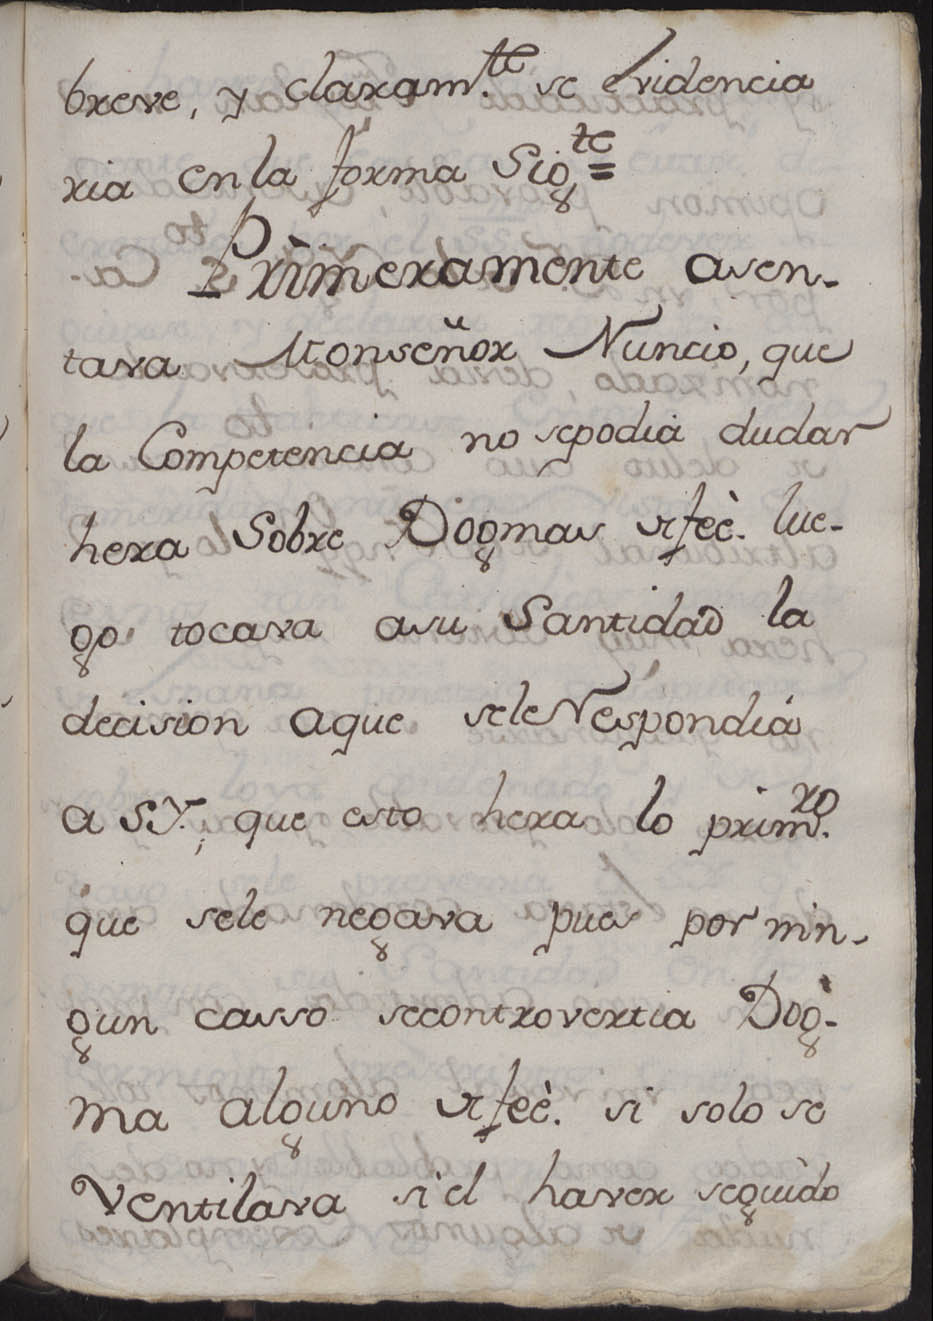 breve, y claram.te se evidencia
ria en la forma Sig.te =
Primeramente asen-
tava Monseñor Nuncio, que
la Competencia no sepodia dudar
hera Sobre Dogmas defeè. lue-
go tocava asu Santidad la
decision aque sele Respondiá
a SY.; que esto hera lo prim.ro
que sele negava pues por nin-
gun casso secontrovertia Dog-
ma alguno defeè. si solo se
Ventilava si el haver seguido